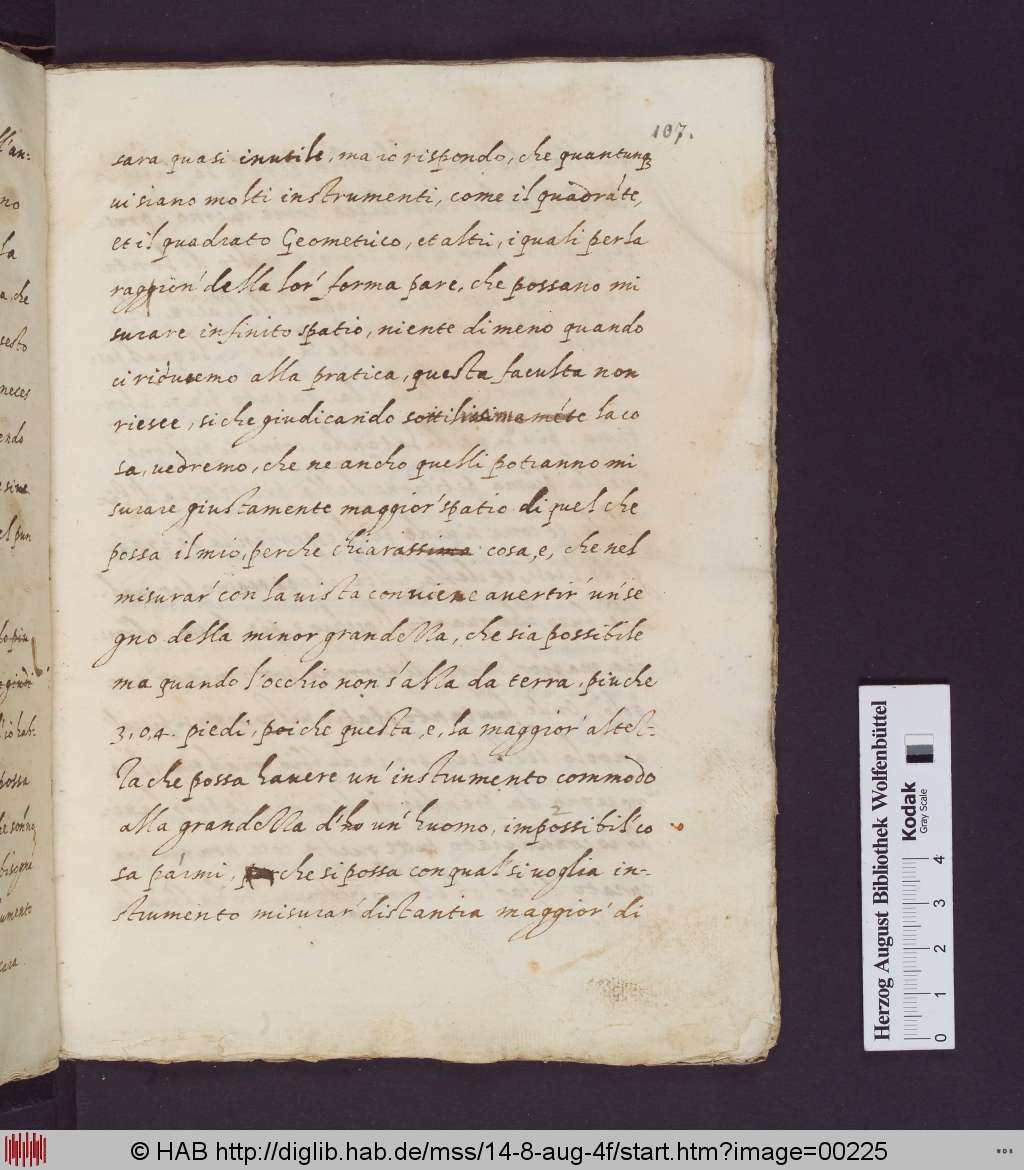 107.
sara quasi inutile, ma io rispondo, che quantunq
ui siano molti instrumenti, come il quadrāte,
et il quadrato Geometrico, et altri, i quali per la
raggion' della lor' forma pare, che possano mi
surare infinito spatio, niente di meno quando
ci riducemo alla pratica, questa faculta non
riesce, si che giudicando sottilissimamēte la co
sa, uedremo, che ne ancho quelli potranno mi
surare giustamente maggior' spatio di quel che
possa il mio, perche chiarassima cosa, e, che nel
misurar' con la uista conviene auertir' un' se
gno della minor grandezza, che sia possibile
ma quando l'occhio non s'alza da terra, piu che
3, o, 4. piedi, poi che questa, e, la maggior' altez-
za che possa havere un' instrumento commodo
alla grandezza d' un' huomo, impossibil' co
sa pármi, che si possa con qual' si voglia in-
strumento misurar' distantia maggior' di
l'an-
no
la
a, che
sesto
neces
endo
e sine
el pun
lo piu
giudi
l'io hab-
possa
bisogna
umento
Herzog August Bibliothek Wolfenbüttel
Kodak
Gray Scale
0 1 2 3 4
© HAB http://diglib.hab.de/mss/14-8-aug-4f/start.htm?image=00225